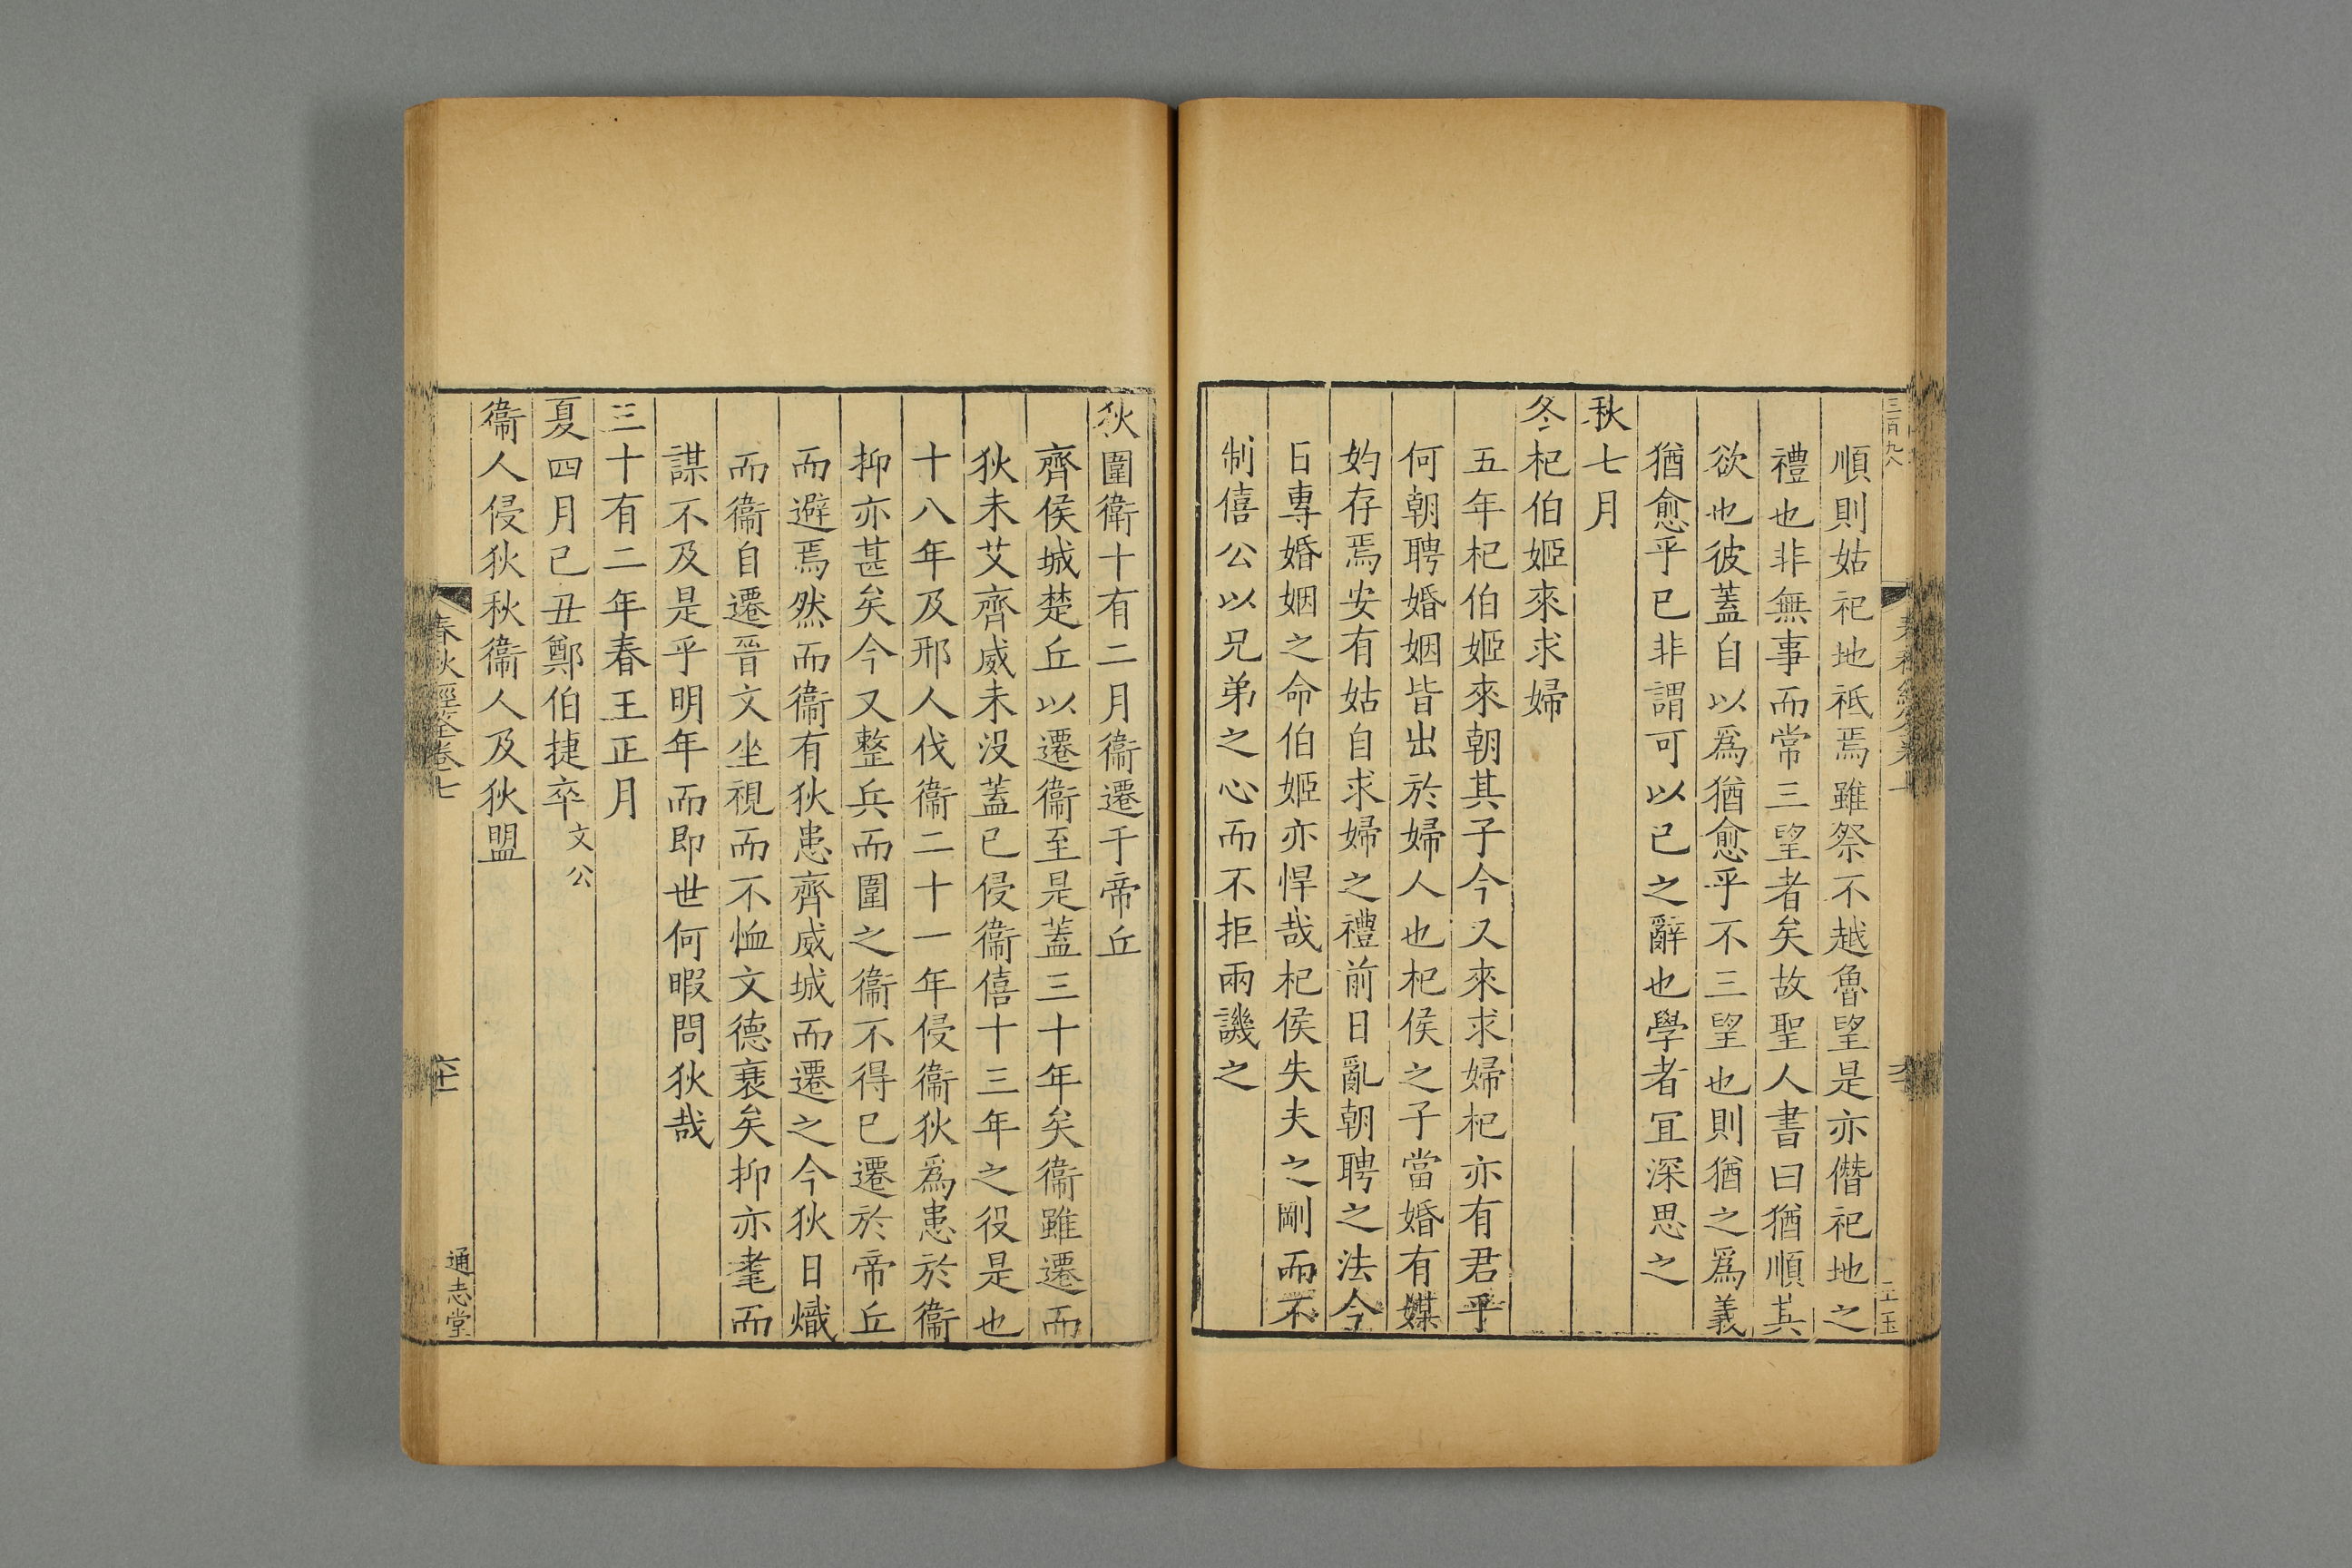 三百九八
順則姑祀地祇焉雖祭不越魯望是亦僭祀地之
禮也非無事而常三望者矣故聖人書曰猶順其
欲也彼蓋自以爲猶愈乎不三望也則猶之爲義
猶愈乎已非謂可以已之辭也學者冝深思之
秋七月
冬杞伯姬來求婦
五年杞伯姬來朝其子今又來求婦杞亦有君乎
何朝聘婚姻皆出於婦人也杞侯之子當婚有媒
妁存焉安有姑自求婦之禮前日亂朝聘之法今
日專婚姻之命伯姬亦悍哉杞侯失夫之剛而不
制僖公以兄弟之心而不拒兩譏之
狄圍衛十有二月衞遷于帝丘
齊侯城楚丘以遷衞至是蓋三十年矣衞雖遷而
狄未艾齊威未没蓋已侵衞僖十三年之役是也
十八年及邢人伐衞二十一年侵衞狄爲患於衞
抑亦甚矣今又整兵而圍之衞不得已遷於帝丘
而避焉然而衞有狄患齊威城而遷之今狄日熾
而衞自遷晉文坐視而不恤文德衰矣抑亦耄而
謀不及是乎明年而即世何暇問狄哉
三十有二年春王正月
夏四月己丑鄭伯捷卒文公
衞人侵狄秋衞人及狄盟
春秋經筌卷七
六十一
通志堂